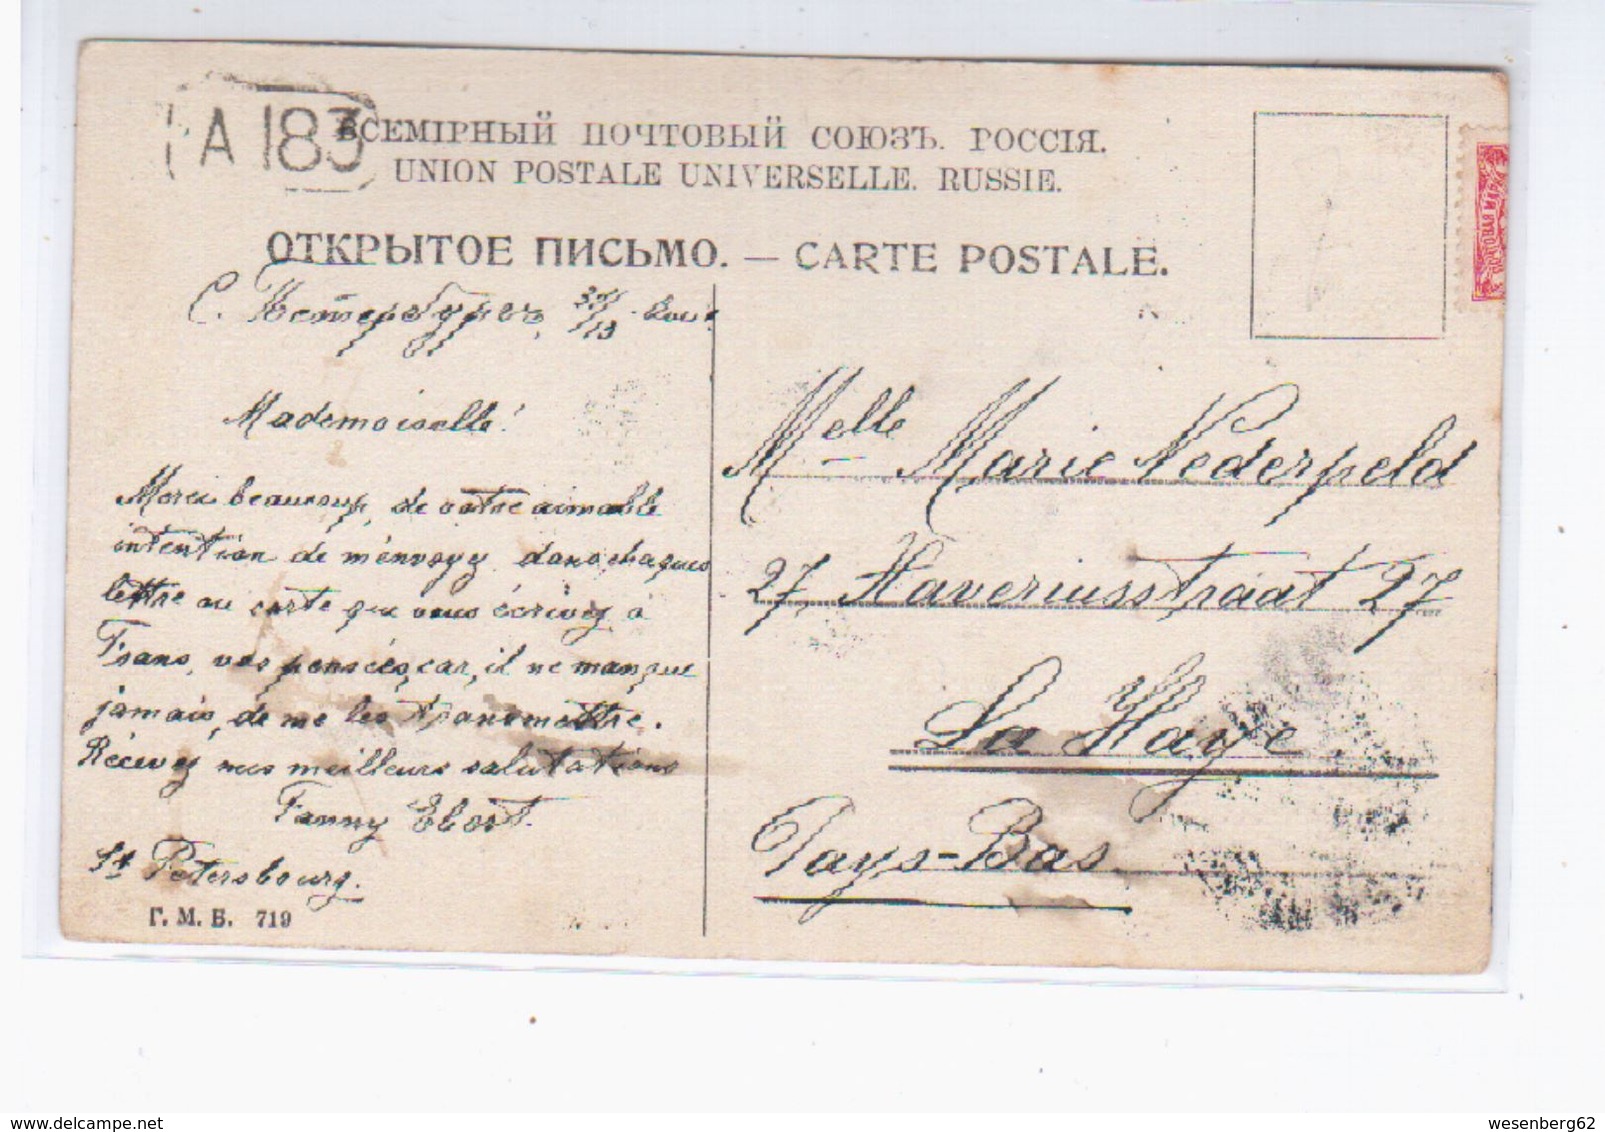 A 183
ВСЕМІРНЫЙ ПОЧТОВЫЙ СОЮЗЪ. РОССІЯ.
UNION POSTALE UNIVERSELLE. RUSSIE.
ОТКРЫТОЕ ПИСЬМО. — CARTE POSTALE.
С. Петербургъ,
Mademoiselle!
Merci beaucoup, de votre aimable
intention de m'envoyy dans chaques
lettre ou carte que vous écrivez à
Frans, vos pensées, car, il ne manque
jamais, de me les transmettre.
Récevez mes meilleurs salutations
Fanny Ebort.
St Petersbourg.
Г. М. Б. 719
Melle Marie Nederpeld
27, Haveriusstraat 27
La Haye.
Pays-Bas
ПОЧТОВАЯ МАР
wesenberg62